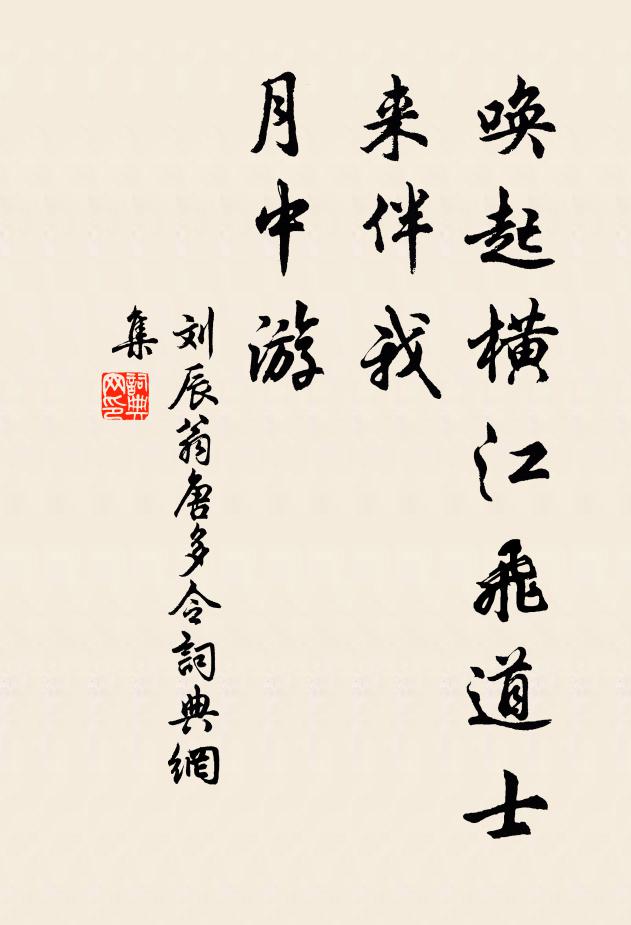 唤起横江飛道士
来伴我
月中游
刘辰翁唐多令詞典網
集
詞典
网印